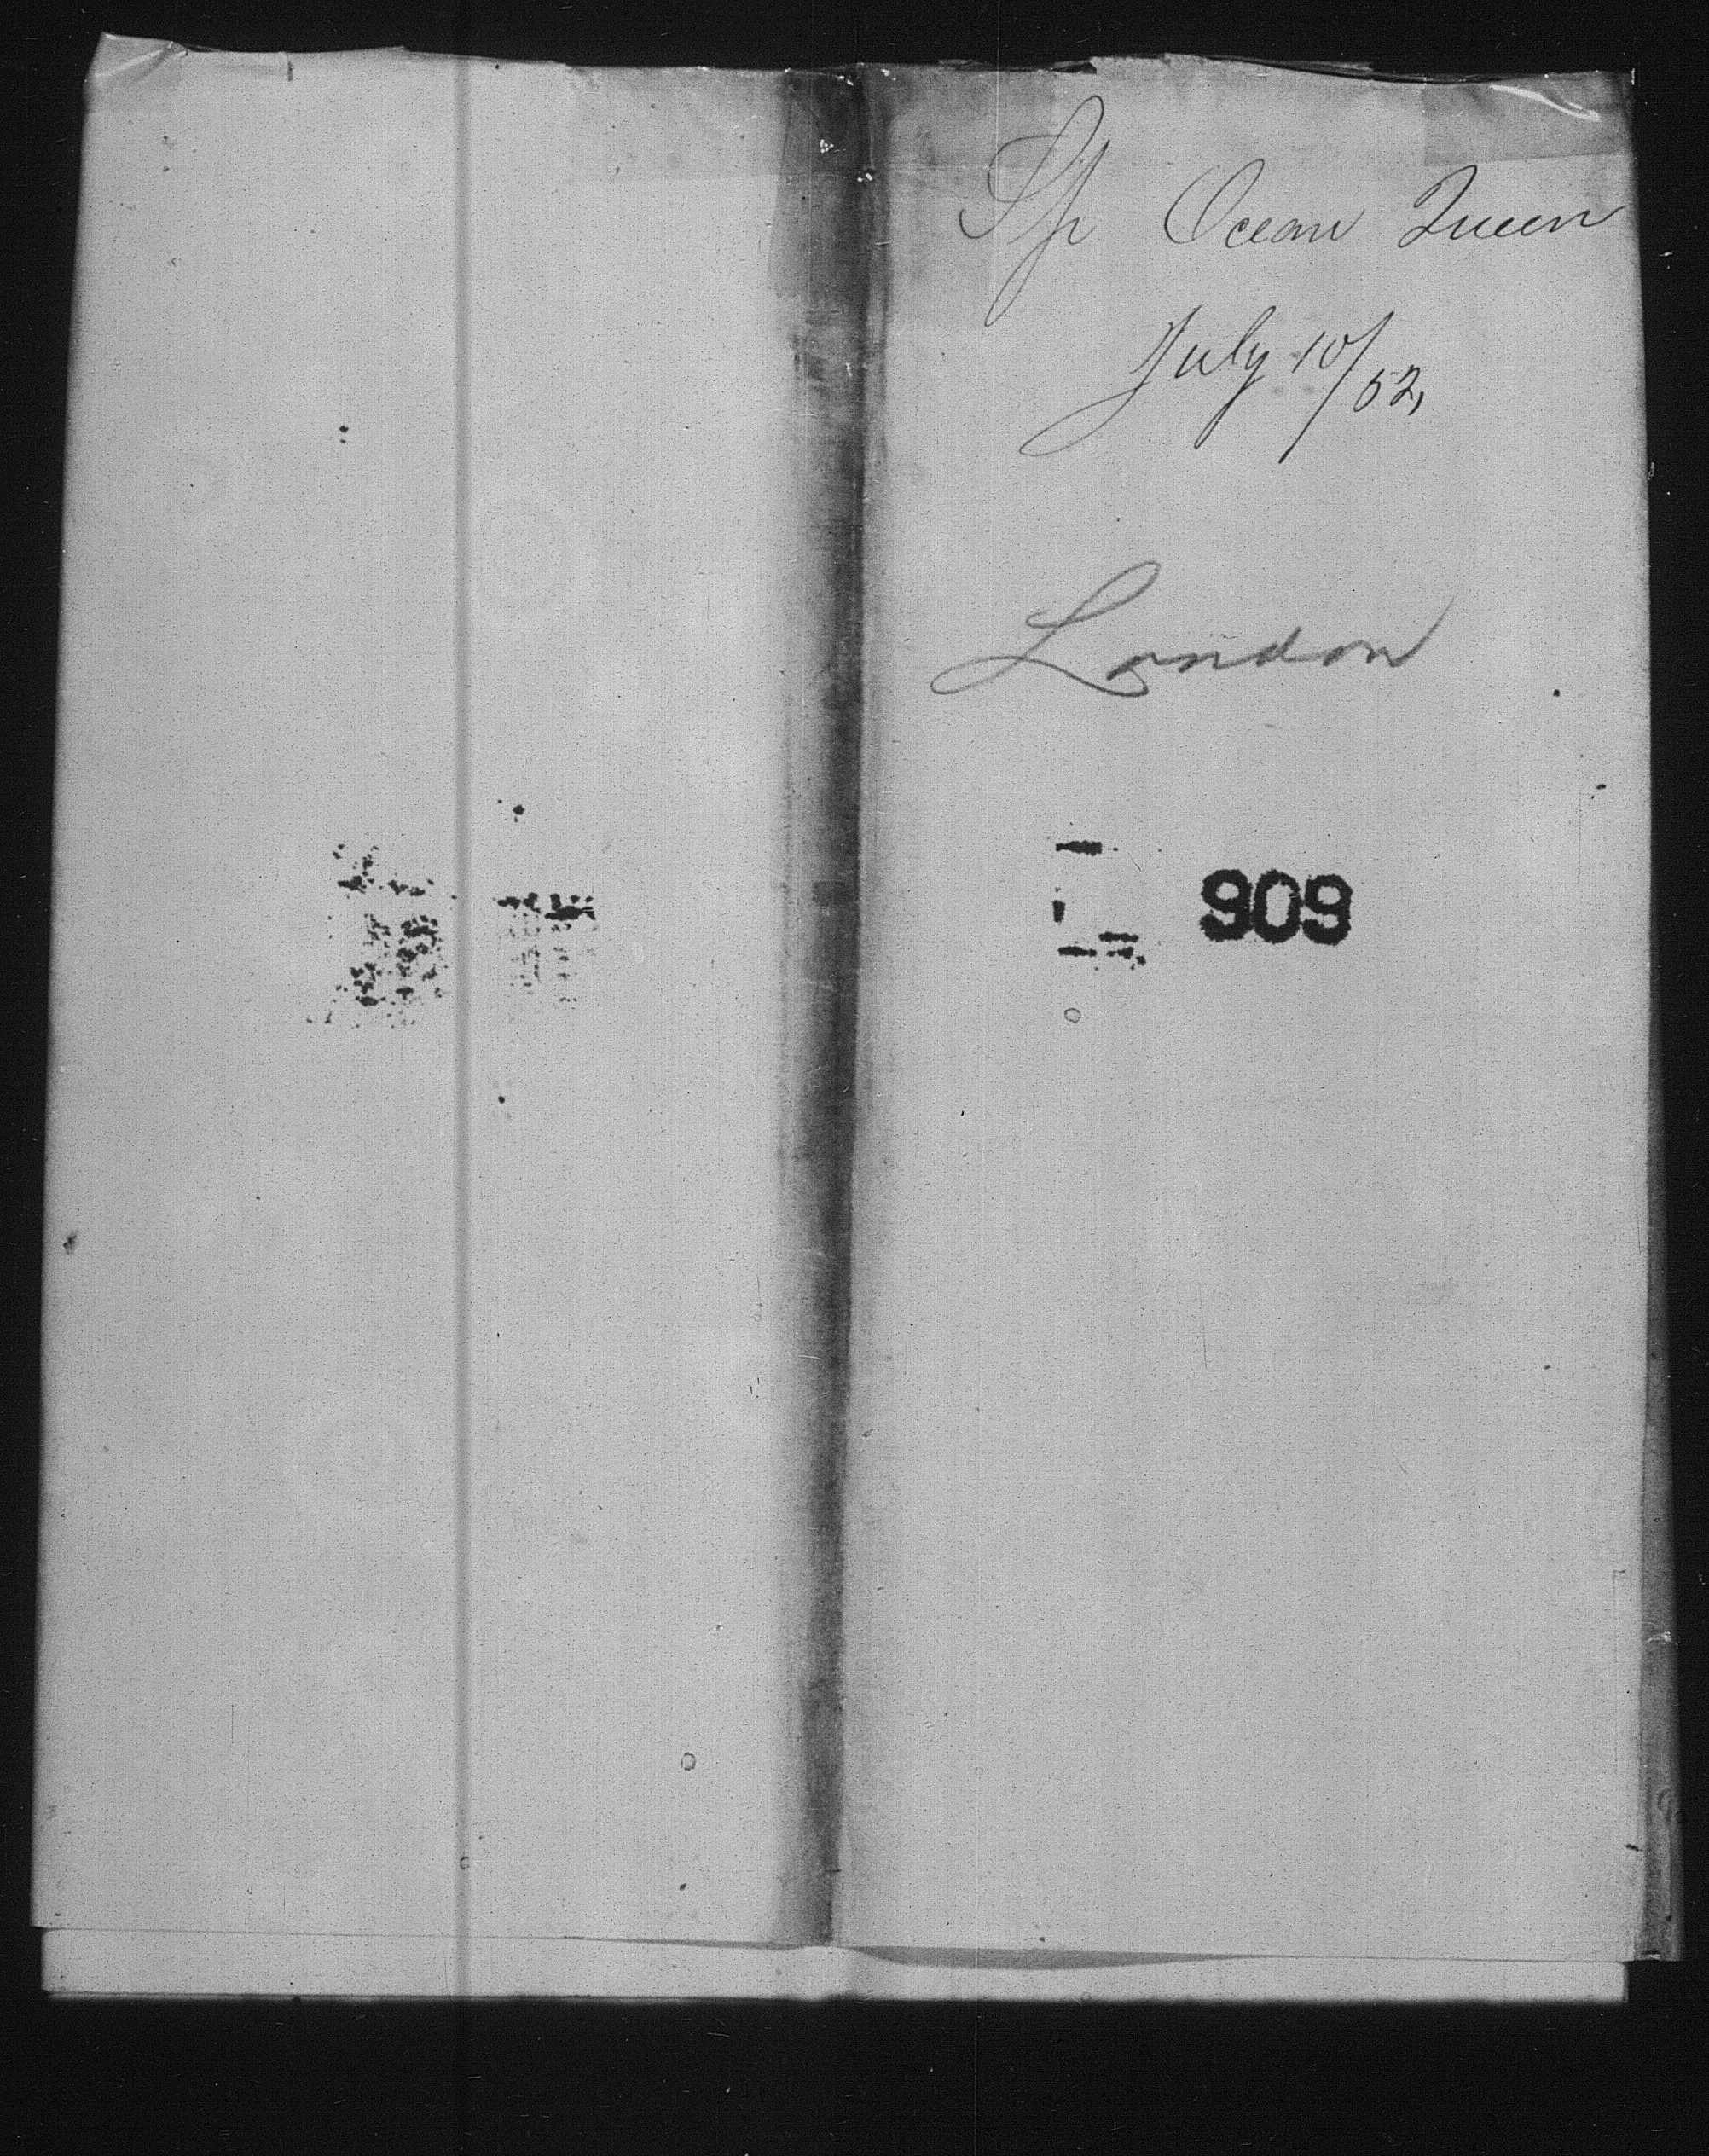 Sp Ocean Queen
July 10/52,
London
909